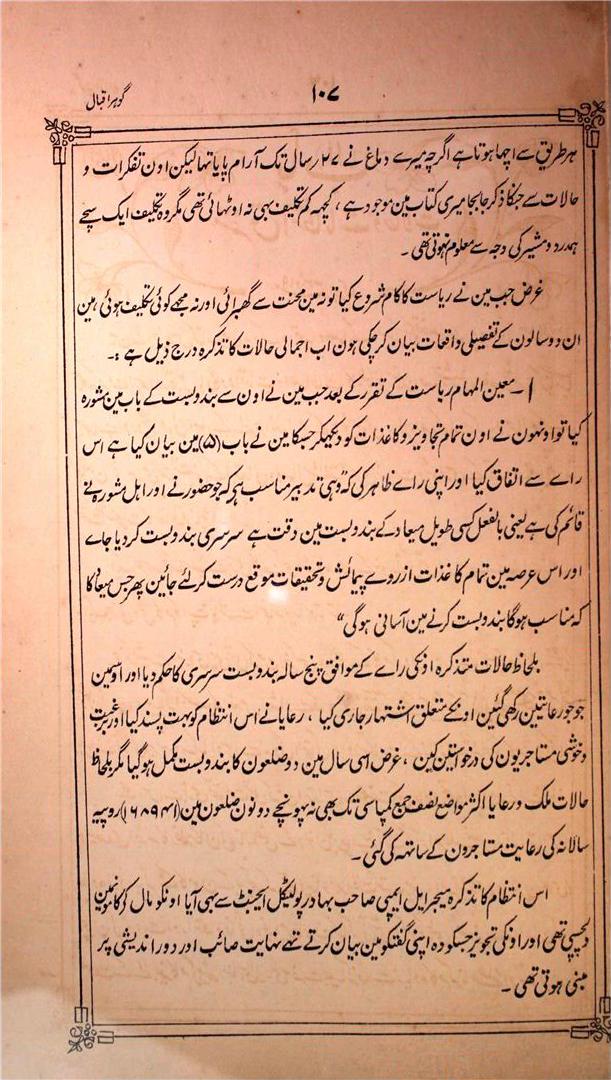 گوہر اقبال
۱۰۷
ہر طریق سے اچھا ہوتا ہے اگرچہ میرے دماغ نے ۲۷ رسال تک آرام پایا تہا لیکن اون تفکرات و
حالات سے جنکا ذکر جابجا میری کتاب مین موجود ہے ، کچہہ کم تکلیف بہی نہ اوٹھائی تھی مگر وہ تکلیف ایک سچے
ہمدرد و مشیر کی وجہ سے معلوم نہوتی تھی ۔
غرض جب مین نے ریاست کا کام شروع کیا تو نہ مین محنت سے گھبرائی اور نہ مجھے کوئی تکلیف ہوئی ، مین
ان دو سالون کے تفصیلی واقعات بیان کر چکی ہون اب اجمالی حالات کا تذکرہ درج ذیل ہے :۔
۱ ۔ معین المہام ریاست کے تقرر کے بعد جب مین نے اون سے بندوبست کے باب مین مشورہ
کیا تو اونہون نے اون تمام تجاویز و کاغذات کو دیکھیکر جسکا مین نے باب (۵) مین بیان کیا ہے اس
راے سے اتفاق کیا اور اپنی راے ظاہر کی کہ "وہی تدبیر مناسب ہے کہ جو حضور نے اور اہل مشورہ نے
قائم کی ہے یعنی بالفعل کسی طویل میعاد کے بندوبست مین دقت ہے سرسری بندوبست کردیا جاے
اور اس عرصہ مین تمام کاغذات ازروے پیمائش و تحقیقات موقع درست کرلئے جائین پھر جس میعاد کا
کہ مناسب ہوگا بندوبست کرنے مین آسانی ہوگی"
بلحاظ حالات متذکرہ اونکی راے کے موافق پنج سالہ بندوبست سرسری کا حکم دیا اور اسمین
جو جو رعاتین رکھی گئین اونکے متعلق اشتہار جاری کیا ، رعایا نے اس انتظام کو بہت پسند کیا اور برغبت
و خوشی مستاجریون کی درخواستین کین ، غرض اسی سال مین دو ضلعون کا بندوبست مکمل ہوگیا مگر بلحاظ
حالات ملک و رعایا اکثر مواضع نصف جمع کمپاسی تک بھی نہ پہونچے دونون ضلعون مین (۱۶۸۹۴۱) روپیہ
سالانہ کی رعایت مستاجرون کے ساتہہ کی گئی ۔
اس انتظام کا تذکرہ میجر ایل ایمپی صاحب بہادر پولٹیکل ایجنٹ سے بہی آیا اونکو مال کے کامونمین
دلچسپی تھی اور اونکی تجویز جسکو وہ اپنی گفتگو مین بیان کرتے تہے نہایت صائب اور دور اندیشی پر
مبنی ہوتی تھی ۔